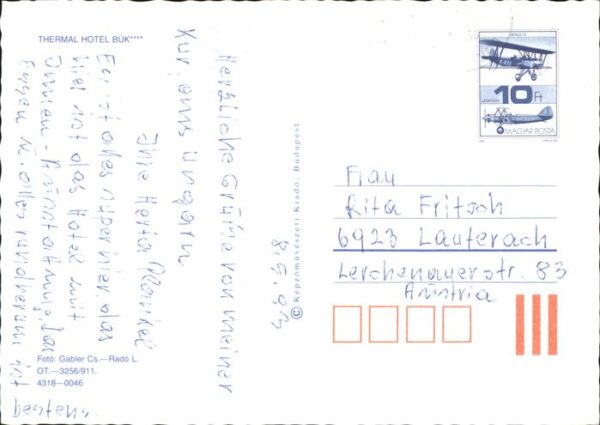 THERMAL HOTEL BÜK****
8.5.93
Herzliche Grüße von meiner
Kur aus Ungarn.
Ihre Herta
Es ist alles super hier, das
Hotel mit
Innen- das
Essen u. alles rundherum ist
bestens.
Fotó: Gabler Cs.—Radó L.
OT.—3256/911.
4318—0046
© Képzőművészeti Kiadó, Budapest
10 Ft
MAGYAR POSTA
Frau
Rita Fritsch
6923 Lauterach
Lerchenauerstr. 83
Austria